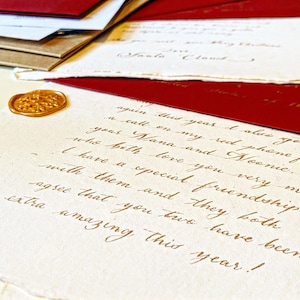 you Merry Christmas
Love
Santa Claus
again this year. I also got
a call on my red phone
your Nana and Noonie.
who both love you very m
I have a special friendship
with them and they both
agree that you two have been
extra amazing this year!